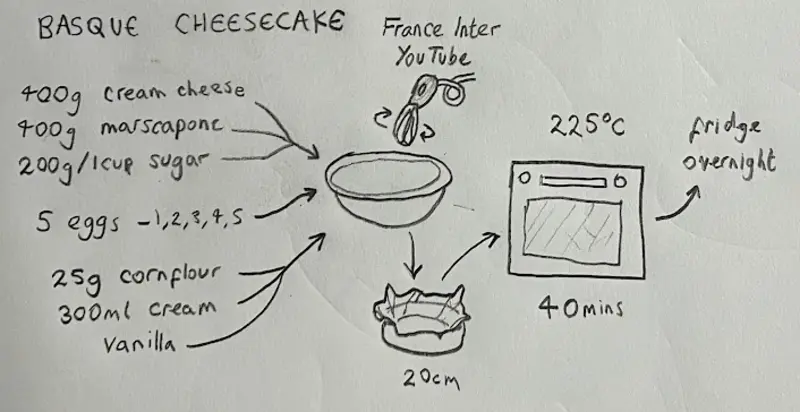 BASQUE CHEESECAKE
France Inter
YouTube
400g cream cheese
400g marscapone
200g/1cup sugar
5 eggs - 1,2,3,4,5
25g cornflour
300ml cream
vanilla
20cm
225°C
40mins
fridge
overnight